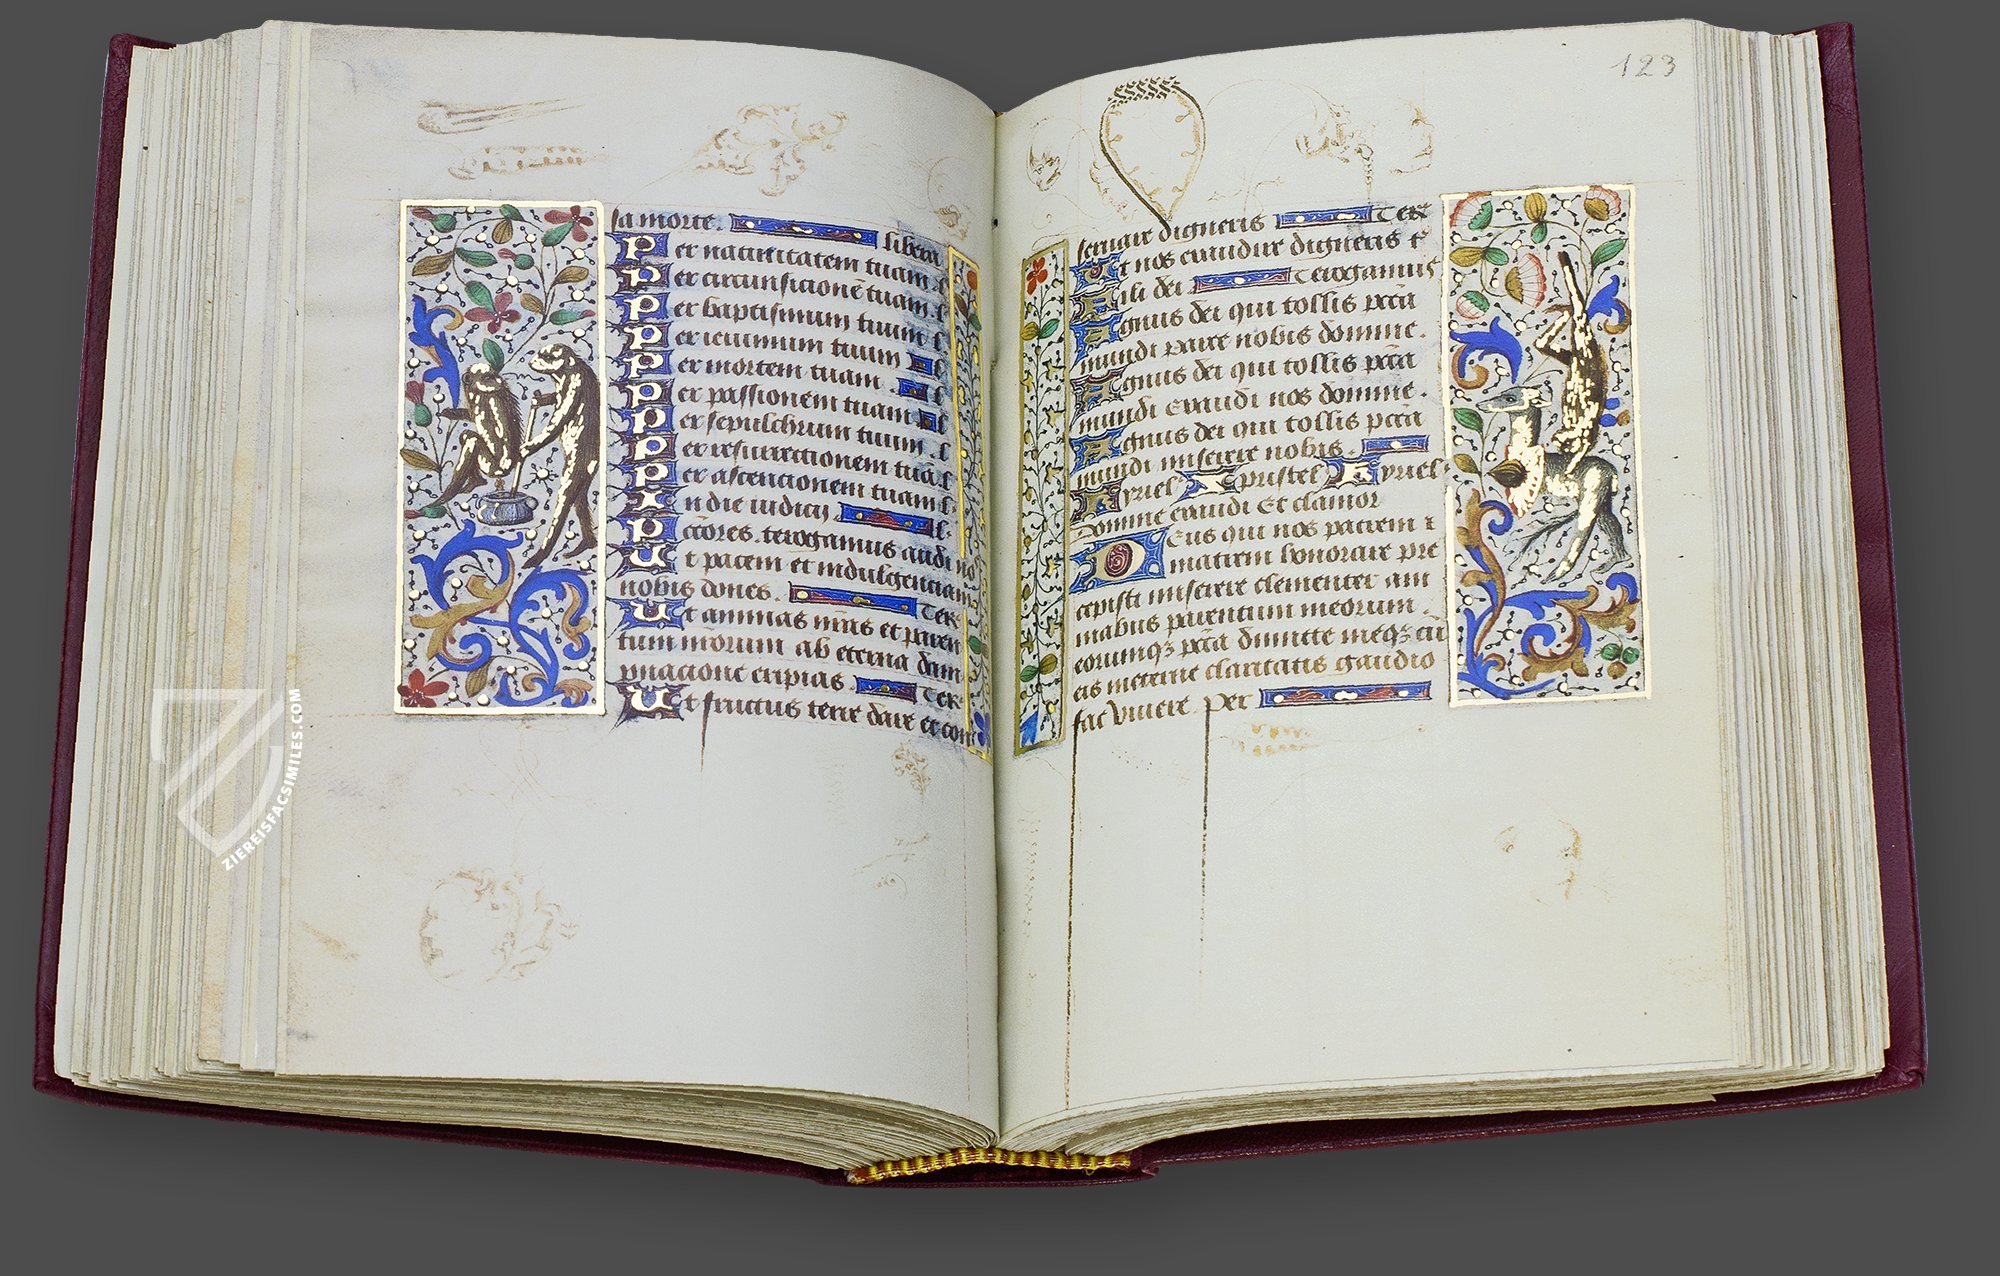 sa morte. libera
Per natiuitatem tuam. l
Per circunsicionē tuam. l
Per baptismum tuum l
Per ieiunium tuum l
Per mortem tuam l
Per passionem tuam l
Per sepulchrum tuum. l
Per resurrectionem tuā. l
Per ascencionem tuam l
In die iudicij l.
Pctōres. te rogamus audi no
Ut pacem et indulgenciam
nobis dones. Ter
Ut animas nr̄as et paren
tum nr̄orum ab eterna dam
pnacione eripias. Ter
Ut fructus terre dare et con
123
seruare digneris Ter
Ut nos exaudire digneris t
Fili dei Te rogamus
Agnus dei qui tollis pctā
mundi Parce nobis domine.
Agnus dei qui tollis pctā
mundi Exaudi nos domine.
Agnus dei qui tollis pctā
mundi miserere nobis.
Kyriel Xpristel Kyriel
Domine exaudi Et clamor
Deus qui nos patrem z
matrem honorare pre
cepisti miserere clementer ani
mabus parentum meorum.
eorumqz pctā dimitte meqz cū
eis in eterne claritatis gaudio
fac viuere. Per
ZIEREISFACSIMILES.COM